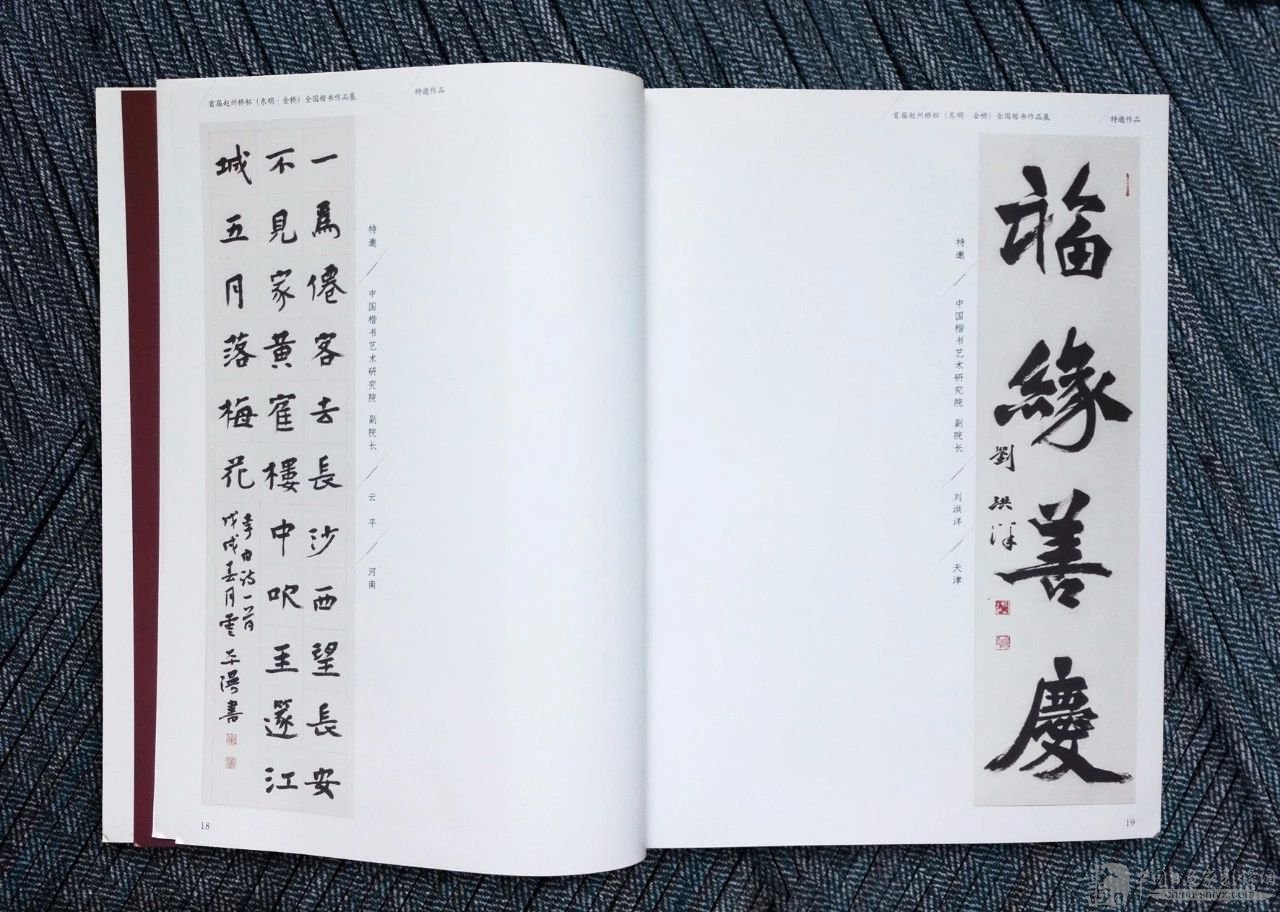 首届赵州桥杯(东明·金桥)全国楷书作品展
特邀作品
一爲僊客去長沙西望長安
不見家黄寉樓中吹玉篴江
城五月落梅花
李白诗一首
戊戌春月雲平漫書
特邀 中国楷书艺术研究院 副院长 云平 河南
18
首届赵州桥杯(东明·金桥)全国楷书作品展
特邀作品
福緣善慶
劉洪洋
特邀 中国楷书艺术研究院 副院长 刘洪洋 天津
19